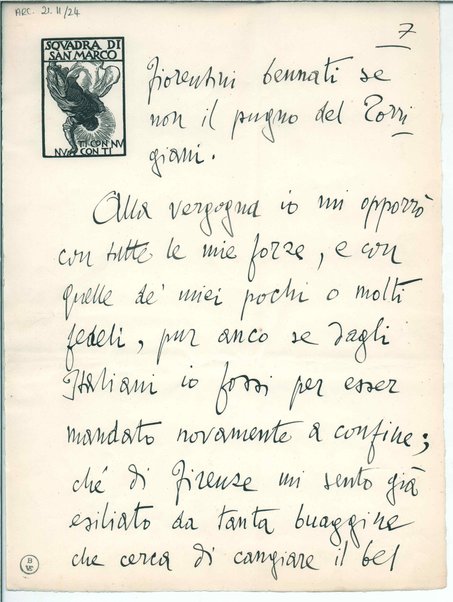 ARC. 21.II/24
7
SQVADRA DI
SAN MARCO
TI CON NV
NVI CON TI
fiorentini bennati se
non il pugno del Torri
giani.
Alla vergogna io mi opporrò
con tutte le mie forze, e con
quelle de' miei pochi o molti
fedeli, pur anco se dagli
Italiani io fossi per esser
mandato novamente a confine;
ché di Firenze mi sento già
esiliato da tanta buaggine
che cerca di cangiare il bel
B